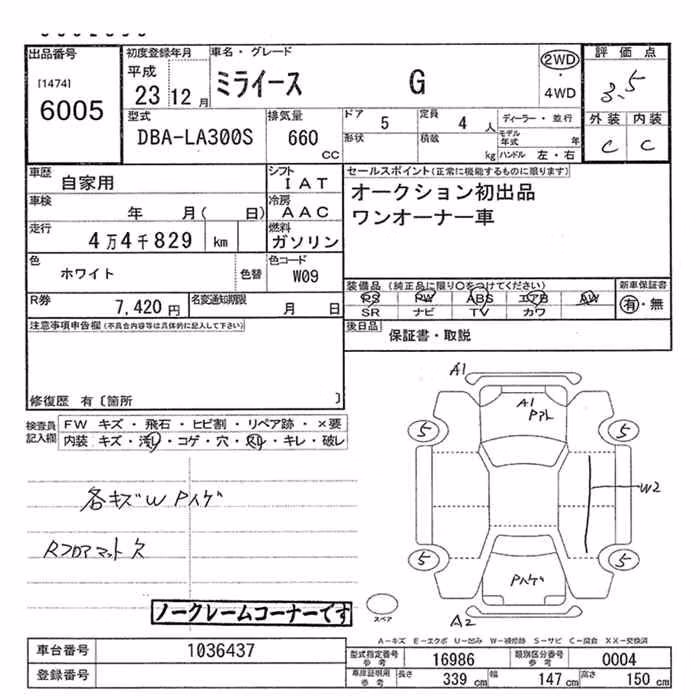 出品番号 初度登録年月 車名・グレード 評価点
[1474] 平成 ミライース G 2WD・4WD 3.5
6005 23 12月 外装 内装
型式 排気量 ドア 5 定員 4人 ディーラー・並行 C C
DBA-LA300S 660cc 形状 積載 kg モデル年式 年 ハンドル 左・右
車歴 自家用 シフト IAT セールスポイント(正常に機能するものに限ります)
車検 年 月( 日) 冷房 AAC オークション初出品
走行 4万4千829 km 燃料 ガソリン ワンオーナー車
色 ホワイト 色替 色コード W09
装備品(純正品に限り○をつけてください) 新車保証書
R券 7,420円 名変通知期限 月 日 PS PW ABS エアB AW 有・無
SR ナビ TV カワ
注意事項申告欄(不具合内容等は具体的に記入して下さい) 後日品 保証書・取説
修復歴 有〔箇所 〕
検査員記入欄 FW キズ・飛石・ヒビ割・リペア跡・×要
内装 キズ・汚レ・コゲ・穴・スレ・キレ・破レ
A1
A1
Pアト
5 5
W2
各キズW Pハゲ
Rフロアマット欠
5 5
Pハゲ
ノークレームコーナーです
スペア
A2
A-キズ E-エクボ U-凹み W-補修跡 S-サビ C-腐食 XX-交換済
車台番号 1036437 型式指定番号 参考 16986 類別区分番号 参考 0004
登録番号 車庫証明用 参考 長さ 339cm 幅 147cm 高さ 150cm